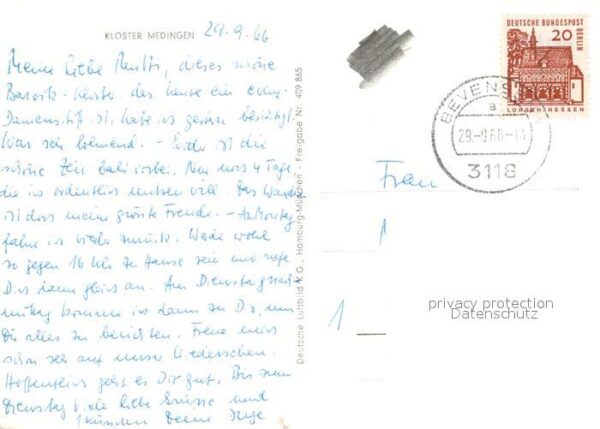 KLOSTER MEDINGEN 29.9.66
Meine liebe Mutti, dieses schöne
Barock-Kloster das heute ein evang.
Damenstift ist, habe ich gestern besichtigt.
War sehr lohnend. – Leider ist die
schöne Zeit bald vorbei. Nur noch 4 Tage,
die ich ordentlich nutzen will. Das Wandern
ist doch meine größte Freude. – Am Montag
fahre ich wieder zurück. Werde wohl
so gegen 16 Uhr zu Hause sein und rufe
Dich dann gleich an. Am Dienstag nach-
mittag komme ich dann zu Dir, um
Dir alles zu berichten. Freue mich
schon sehr auf unser Wiedersehen.
Hoffentlich geht es Dir gut. Bis zum
Dienstag viele liebe Grüsse und
Deine Inge
Deutsche Luftbild K G., Hamburg-München - Freigabe Nr. 409 865
DEUTSCHE BUNDESPOST BERLIN
20
LORSCH/HESSEN
BEVENSEN
a
29.-9.66-
3118
Frau
1
privacy protection
Datenschutz